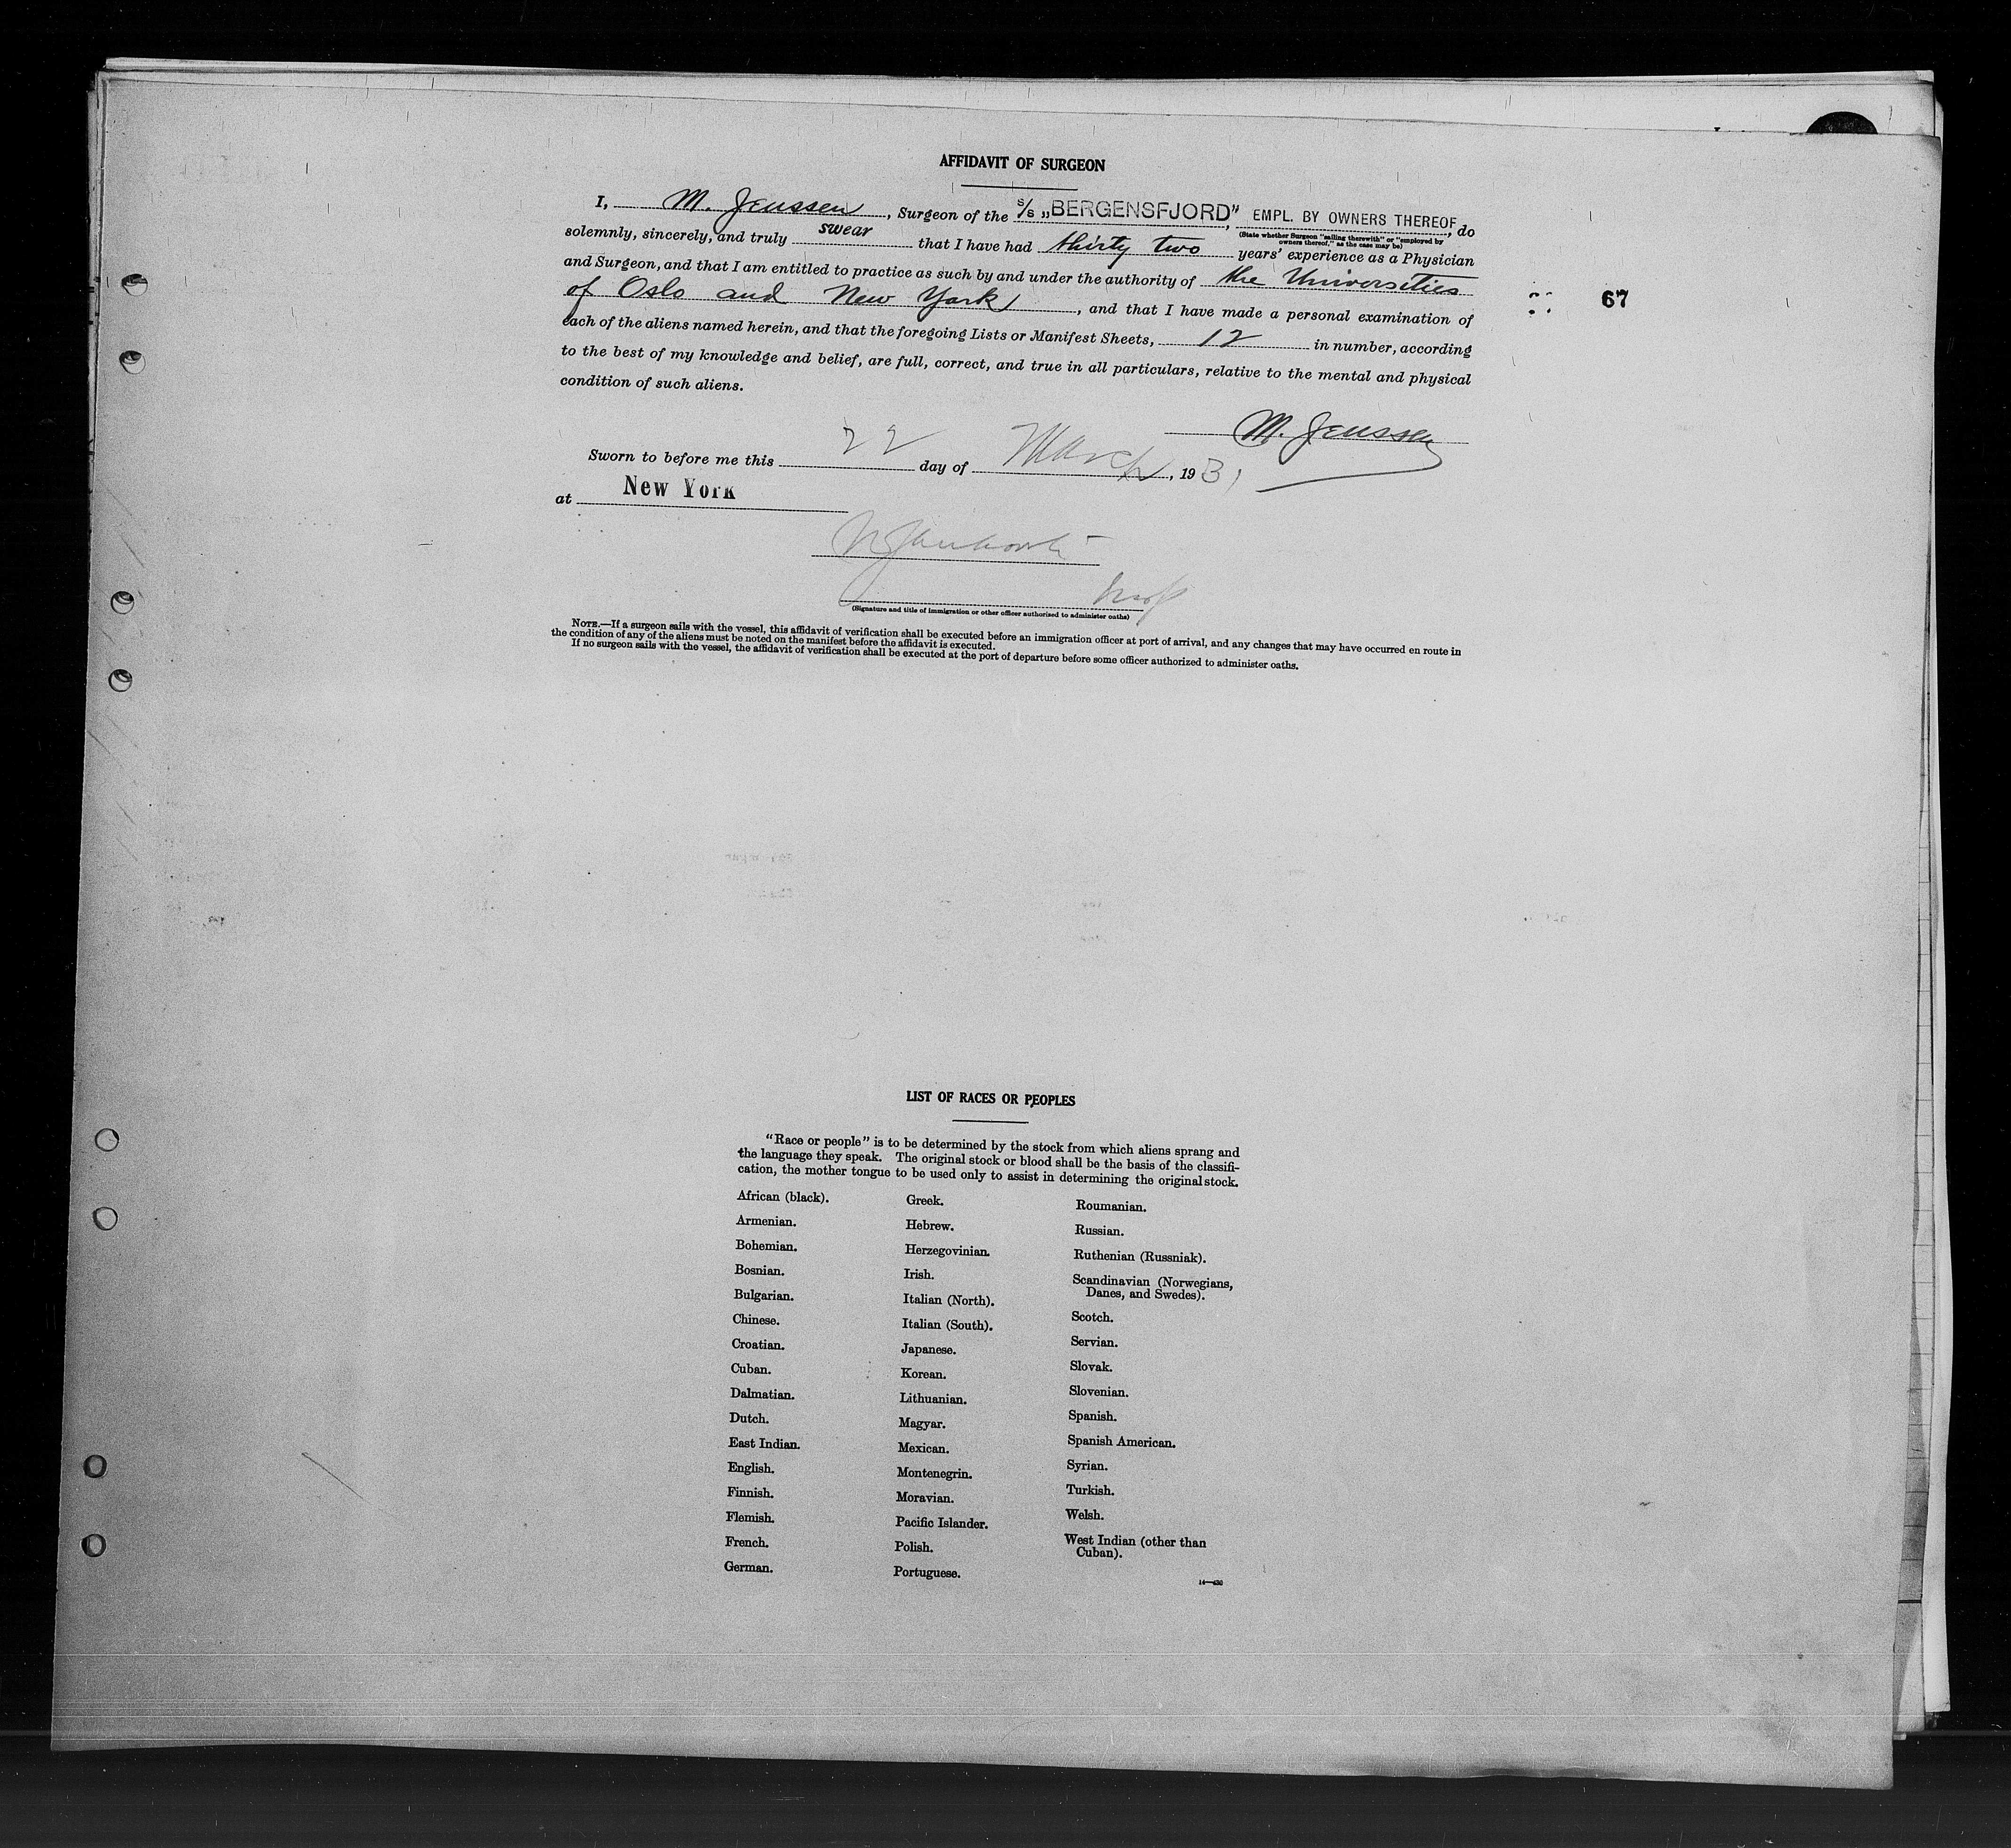 AFFIDAVIT OF SURGEON
I, M. Jenssen, Surgeon of the S/S „BERGENSFJORD”, EMPL. BY OWNERS THEREOF, do
(State whether Surgeon "sailing therewith" or "employed by
owners thereof," as the case may be)
solemnly, sincerely, and truly swear that I have had thirty two years' experience as a Physician
and Surgeon, and that I am entitled to practice as such by and under the authority of the Universities
of Oslo and New York, and that I have made a personal examination of
67
each of the aliens named herein, and that the foregoing Lists or Manifest Sheets, 12 in number, according
to the best of my knowledge and belief, are full, correct, and true in all particulars, relative to the mental and physical
condition of such aliens.
M. Jenssen
Sworn to before me this 22 day of March, 1931
at New York
(Signature and title of immigration or other officer authorized to administer oaths)
NOTE.—If a surgeon sails with the vessel, this affidavit of verification shall be executed before an immigration officer at port of arrival, and any changes that may have occurred en route in
the condition of any of the aliens must be noted on the manifest before the affidavit is executed.
If no surgeon sails with the vessel, the affidavit of verification shall be executed at the port of departure before some officer authorized to administer oaths.
LIST OF RACES OR PEOPLES
"Race or people" is to be determined by the stock from which aliens sprang and
the language they speak. The original stock or blood shall be the basis of the classifi-
cation, the mother tongue to be used only to assist in determining the original stock.
African (black).
Armenian.
Bohemian.
Bosnian.
Bulgarian.
Chinese.
Croatian.
Cuban.
Dalmatian.
Dutch.
East Indian.
English.
Finnish.
Flemish.
French.
German.
Greek.
Hebrew.
Herzegovinian.
Irish.
Italian (North).
Italian (South).
Japanese.
Korean.
Lithuanian.
Magyar.
Mexican.
Montenegrin.
Moravian.
Pacific Islander.
Polish.
Portuguese.
Roumanian.
Russian.
Ruthenian (Russniak).
Scandinavian (Norwegians,
Danes, and Swedes).
Scotch.
Servian.
Slovak.
Slovenian.
Spanish.
Spanish American.
Syrian.
Turkish.
Welsh.
West Indian (other than
Cuban).